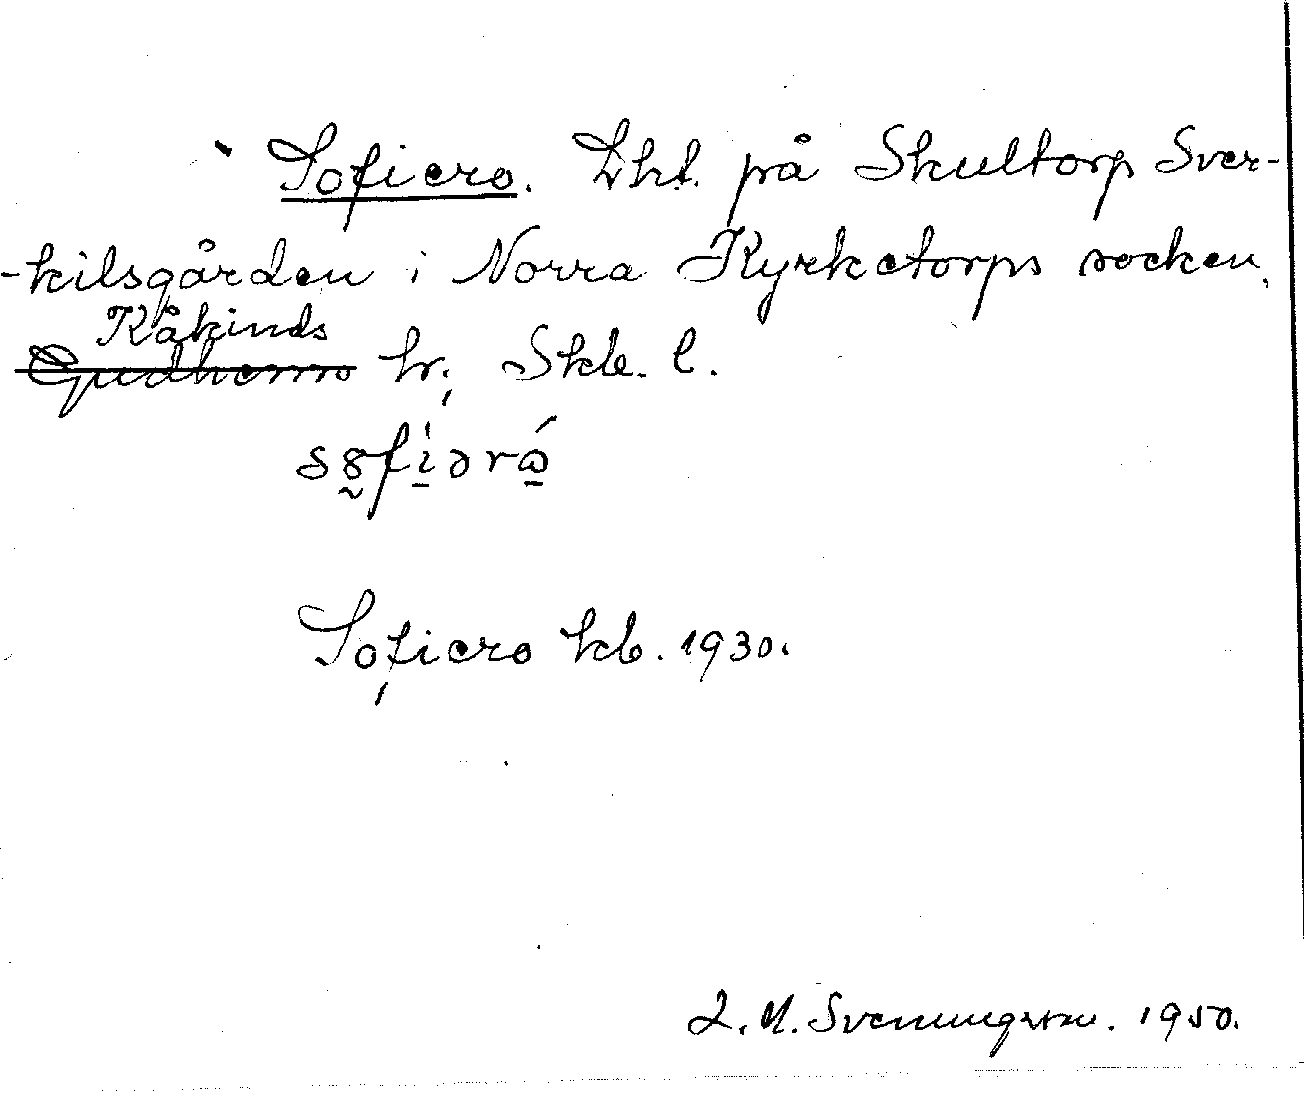 Sofiero. Lht. på Skultorp Sver-
-kilsgården i Norra Kyrketorps socken,
Kåkinds
Gudhems hr, Skb. l.
Sofiero kb. 1930.
Svenungsson. 1950.